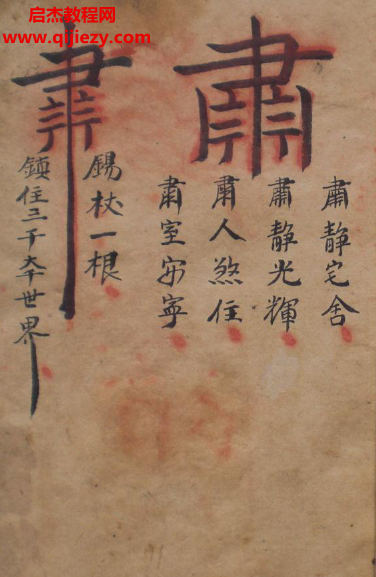 启杰教程网
www.qijiezy.com
肅
肅靜宅舍
肅靜光輝
肅人煞住
肅室安寧
錫杖一根
鎮住三千大千世界